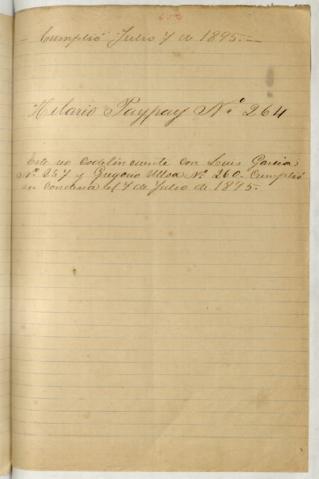 Cumplió Julio 7 de 1895.
Hilario Paypay Nº 264
Este es Codelincuente con Luis Garcia
Nº 257 y Gregorio Ulloa Nº 260. Cumplió
su condena el 7 de Julio de 1895.